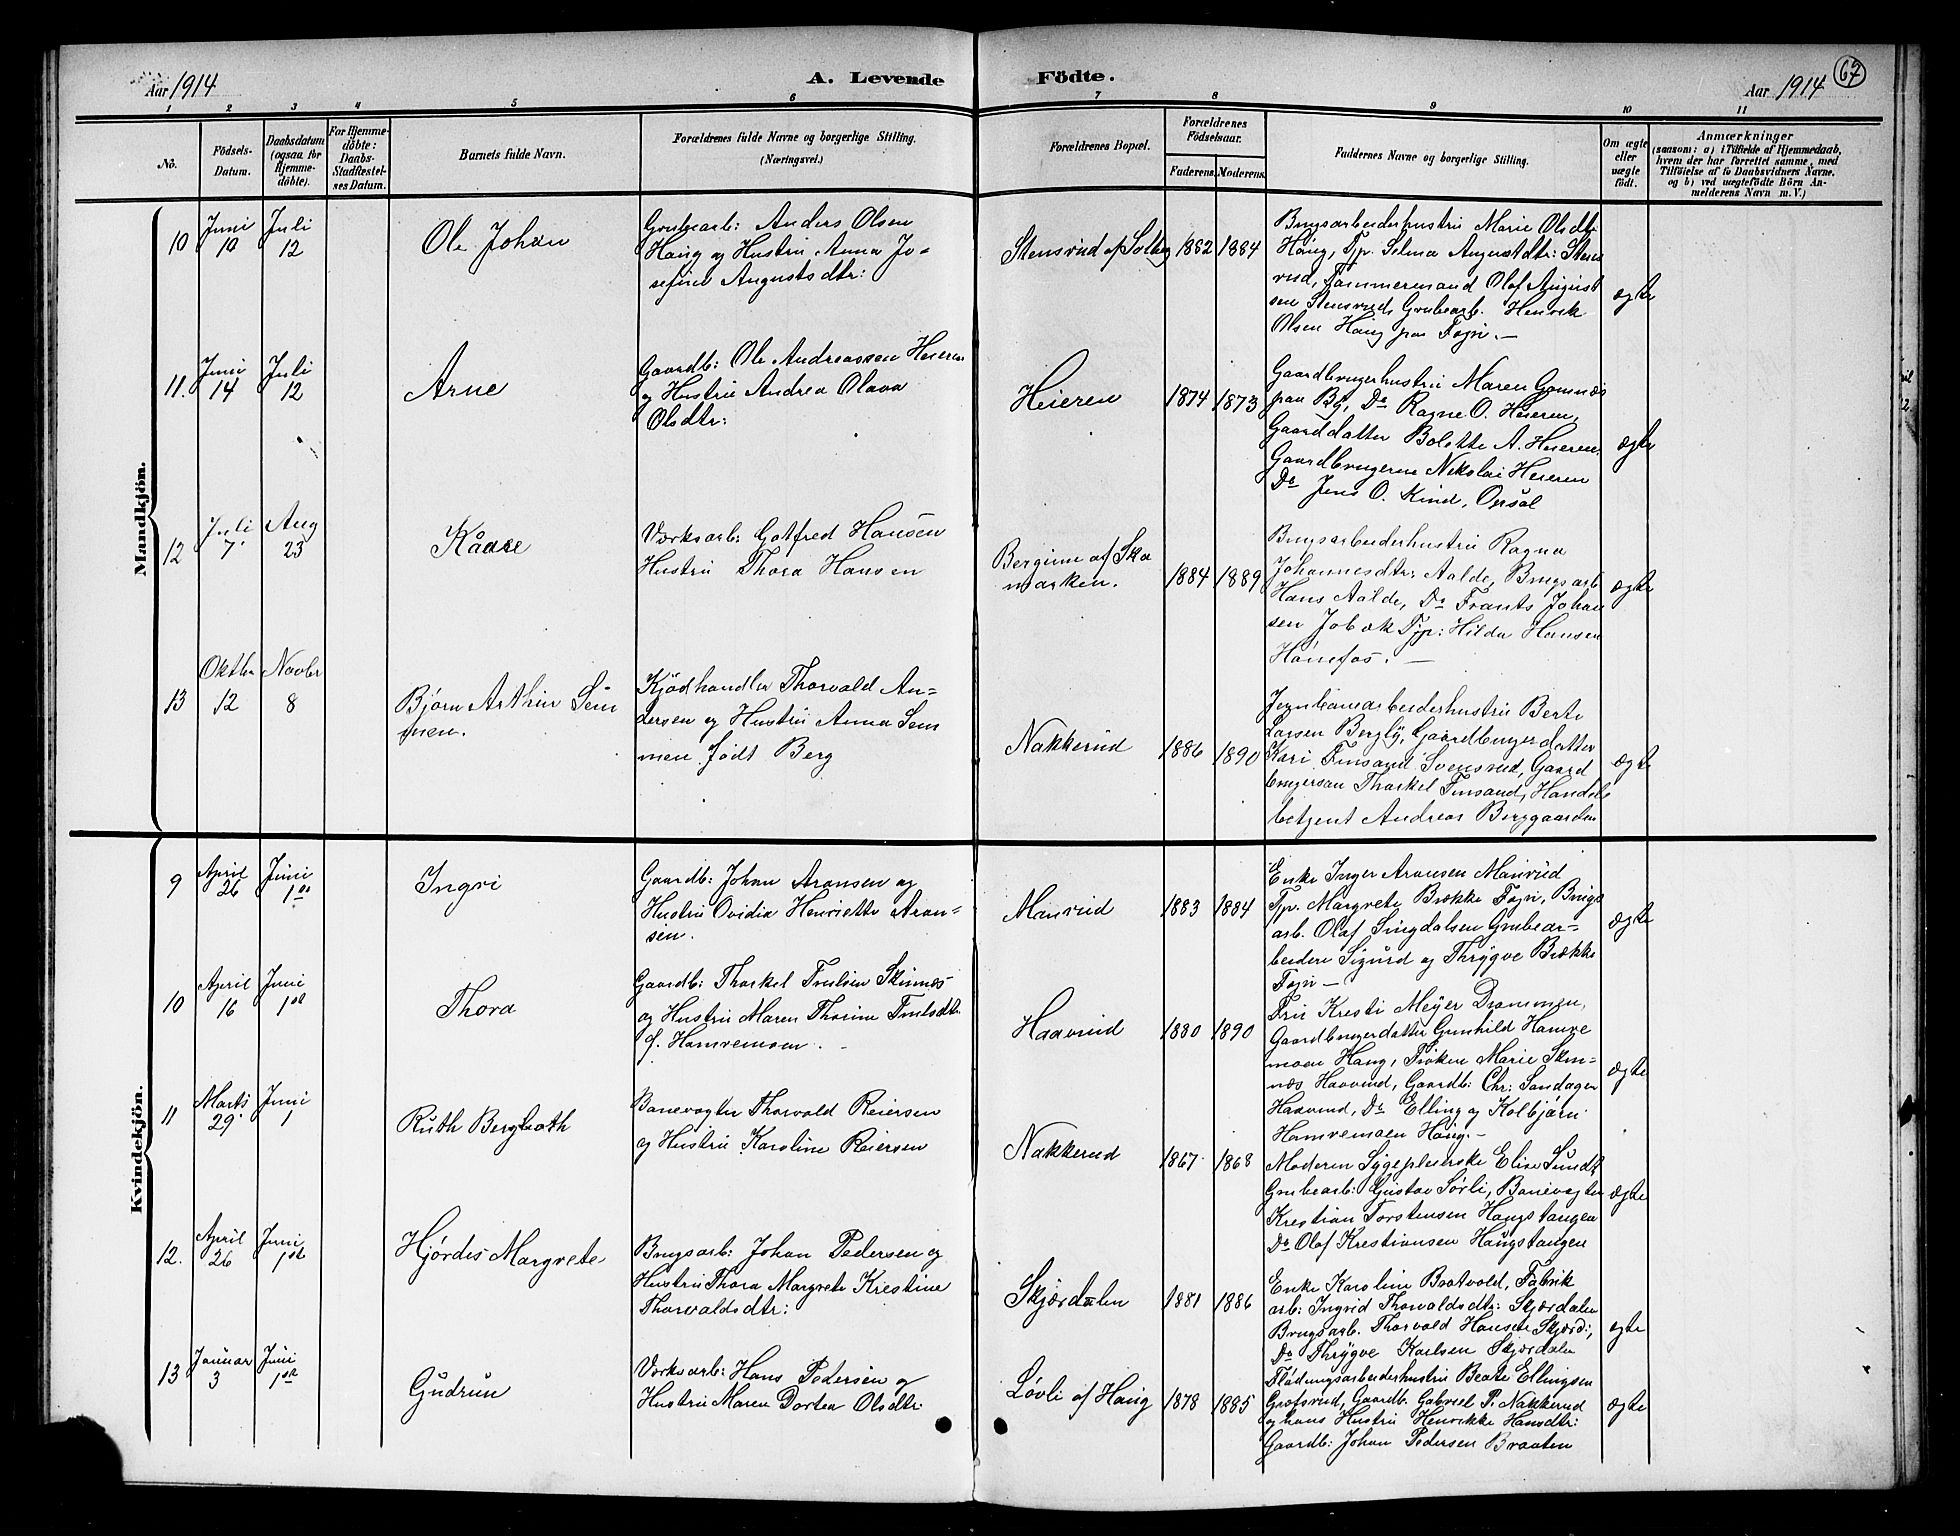 Aar 1914
A. Levende
Födte.
Aar 1914
67
1 2 3 4 5 6 7 8 9 10 11
No.
Födsels-
Datum.
Daabsdatum
(ogsaa for
Hjemme-
döbte).
For Hjemme-
döbte:
Daabs-
Stadfæstel-
ses Datum.
Barnets fulde Navn.
Forældrenes fulde Navne og borgerlige Stilling.
(Næringsvei.)
Forældrenes Bopæl.
Forældrenes
Födselsaar.
Faderens. Moderens.
Faddernes Navne og borgerlige Stilling.
Om ægte
eller
uægte
födt.
Anmærkninger
(saasom: a) i Tilfælde af Hjemmedaab,
hvem der har forrettet samme, med
Tilföielse af to Daabsvidners Navne,
og b) ved uægtefödte Börn An-
melderens Navn m. V.)
Mandkjön.
10
Juni
10
Juli
12
Ole Johan
Grubearb: Anders Olsen
Haug og Hustru Anna Jo-
sefine Augustsdtr:
Stensrud af Solberg
1882 1884
Brugsarbeiderhustru Marie Olsdtr
Haug, Tjp. Selma Augustdtr: Stens
rud, Tømmermand Olaf August
sen Stensrud, Grubearb. Henrik
Olsen Haug paa Tojn. —
ægte
11.
Juni
14
Juli
12
Arne
Gaardb: Ole Andreassen Heieren
og Hustru Andrea Olava
Olsdtr:
Heieren
1874 1873
Gaardbrugerhustru Maren Gomnæs
paa By, Do Ragne O. Heieren,
Gaarddatter Bolette A. Heieren,
Gaardbrugerne Nikolai Heieren
Do Jens O. Kind, Opsal
ægte
12
Juli
7
Aug
23
Kåare
Værksarb: Gotfred Hansen
Hustru Thora Hansen
Bergime af Sko
marken.
1884 1889
Brugsarbeiderhustru Ragna
Johannesdtr: Aalde, Brugsarb
Hans Aalde, Do Frants Johan
sen Jobæk Tjp: Hilda Hansen
Hønefos. —
ægte
13
Oktbr
12
Novbr
8
Bjørn Arthur Sem
men.
Kjødhandler Thorvald An-
dersen og Hustru Anna Sem
men født Berg
Nakkerud
1886 1890
Jernbanearbeiderhustru Berte
Larsen Bergly, Gaardbrugerdatter
Kari Finsand Svensrud, Gaard
brugersøn Thorkel Finsand, Handels
betjent Andreas Berggaarden
ægte
Kvindekjön.
9
April
26
Juni
1ste
Ingri
Gaardb: Johan Aronsen og
Hustru Ovidia Henriette Aron-
sen.
Manrud
1883 1884
Enke Inger Aronsen Manrud
Tjp. Margrete Brække Tojn, Brugs
arb. Olaf Singdalsen Grubear-
beidere Sigurd og Thrygve Brække
Tojn —
ægte
10
April
16
Juni
1ste
Thora
Gaardb: Thorkel Truulsen Skinnes
og Hustru Maren Thorine Truulsdtr.
f. Hamremoen. -
Haavrud
1880 1890
Fru Kresti Meyer Drammen,
Gaardbrugerdatter Gunhild Hamre
moen Haug, Frøken Marie Skin-
næs Haavrud, Gaardb: Chr: Sandager
Haavrud, Do Elling og Kolbjørn
Hamremoen Haug. —
ægte
11
Marts
29
Juni
1
Ruth Bergljoth
Banevogter Thorvald Reiersen
og Hustru Karoline Reiersen
Nakkerud
1867 1868
Moderen Sygepleierske Elise Sundt
Grubearb: Gustav Sørli, Banevogter
Krestian Torstensen Haugstangen
Do Olaf Krestiansen Haugstangen
ægte
12.
April
26
Juni
1ste
Hjørdis Margrete
Brugsarb: Johan Pedersen og
Hustru Thora Margrete Krestine
Thorvaldsdtr:
Skjærdalen
1881 1886
Enke Karoline Bratvold, Fabrik
arb: Ingrid Thorvaldsdtr: Skjærdalen
Brugsarb. Thorvald Hansen Skjærd:,
Do Thrygve Karlsen Skjærdalen
ægte
13
Januar
3
Juni
1ste
Gudrun
Værksarb: Hans Pedersen og
Hustru Maren Dortea Olsdtr:
Løvli af Haug
1878 1885
Flødningsarbeiderhustru Beate Ellingsen
Grøfsrud, Gaardb. Gabriel P. Nakkerud
og hans Hustru Henrikke Hansdtr:
Gaardb: Johan Pedersen Braaten
ægte